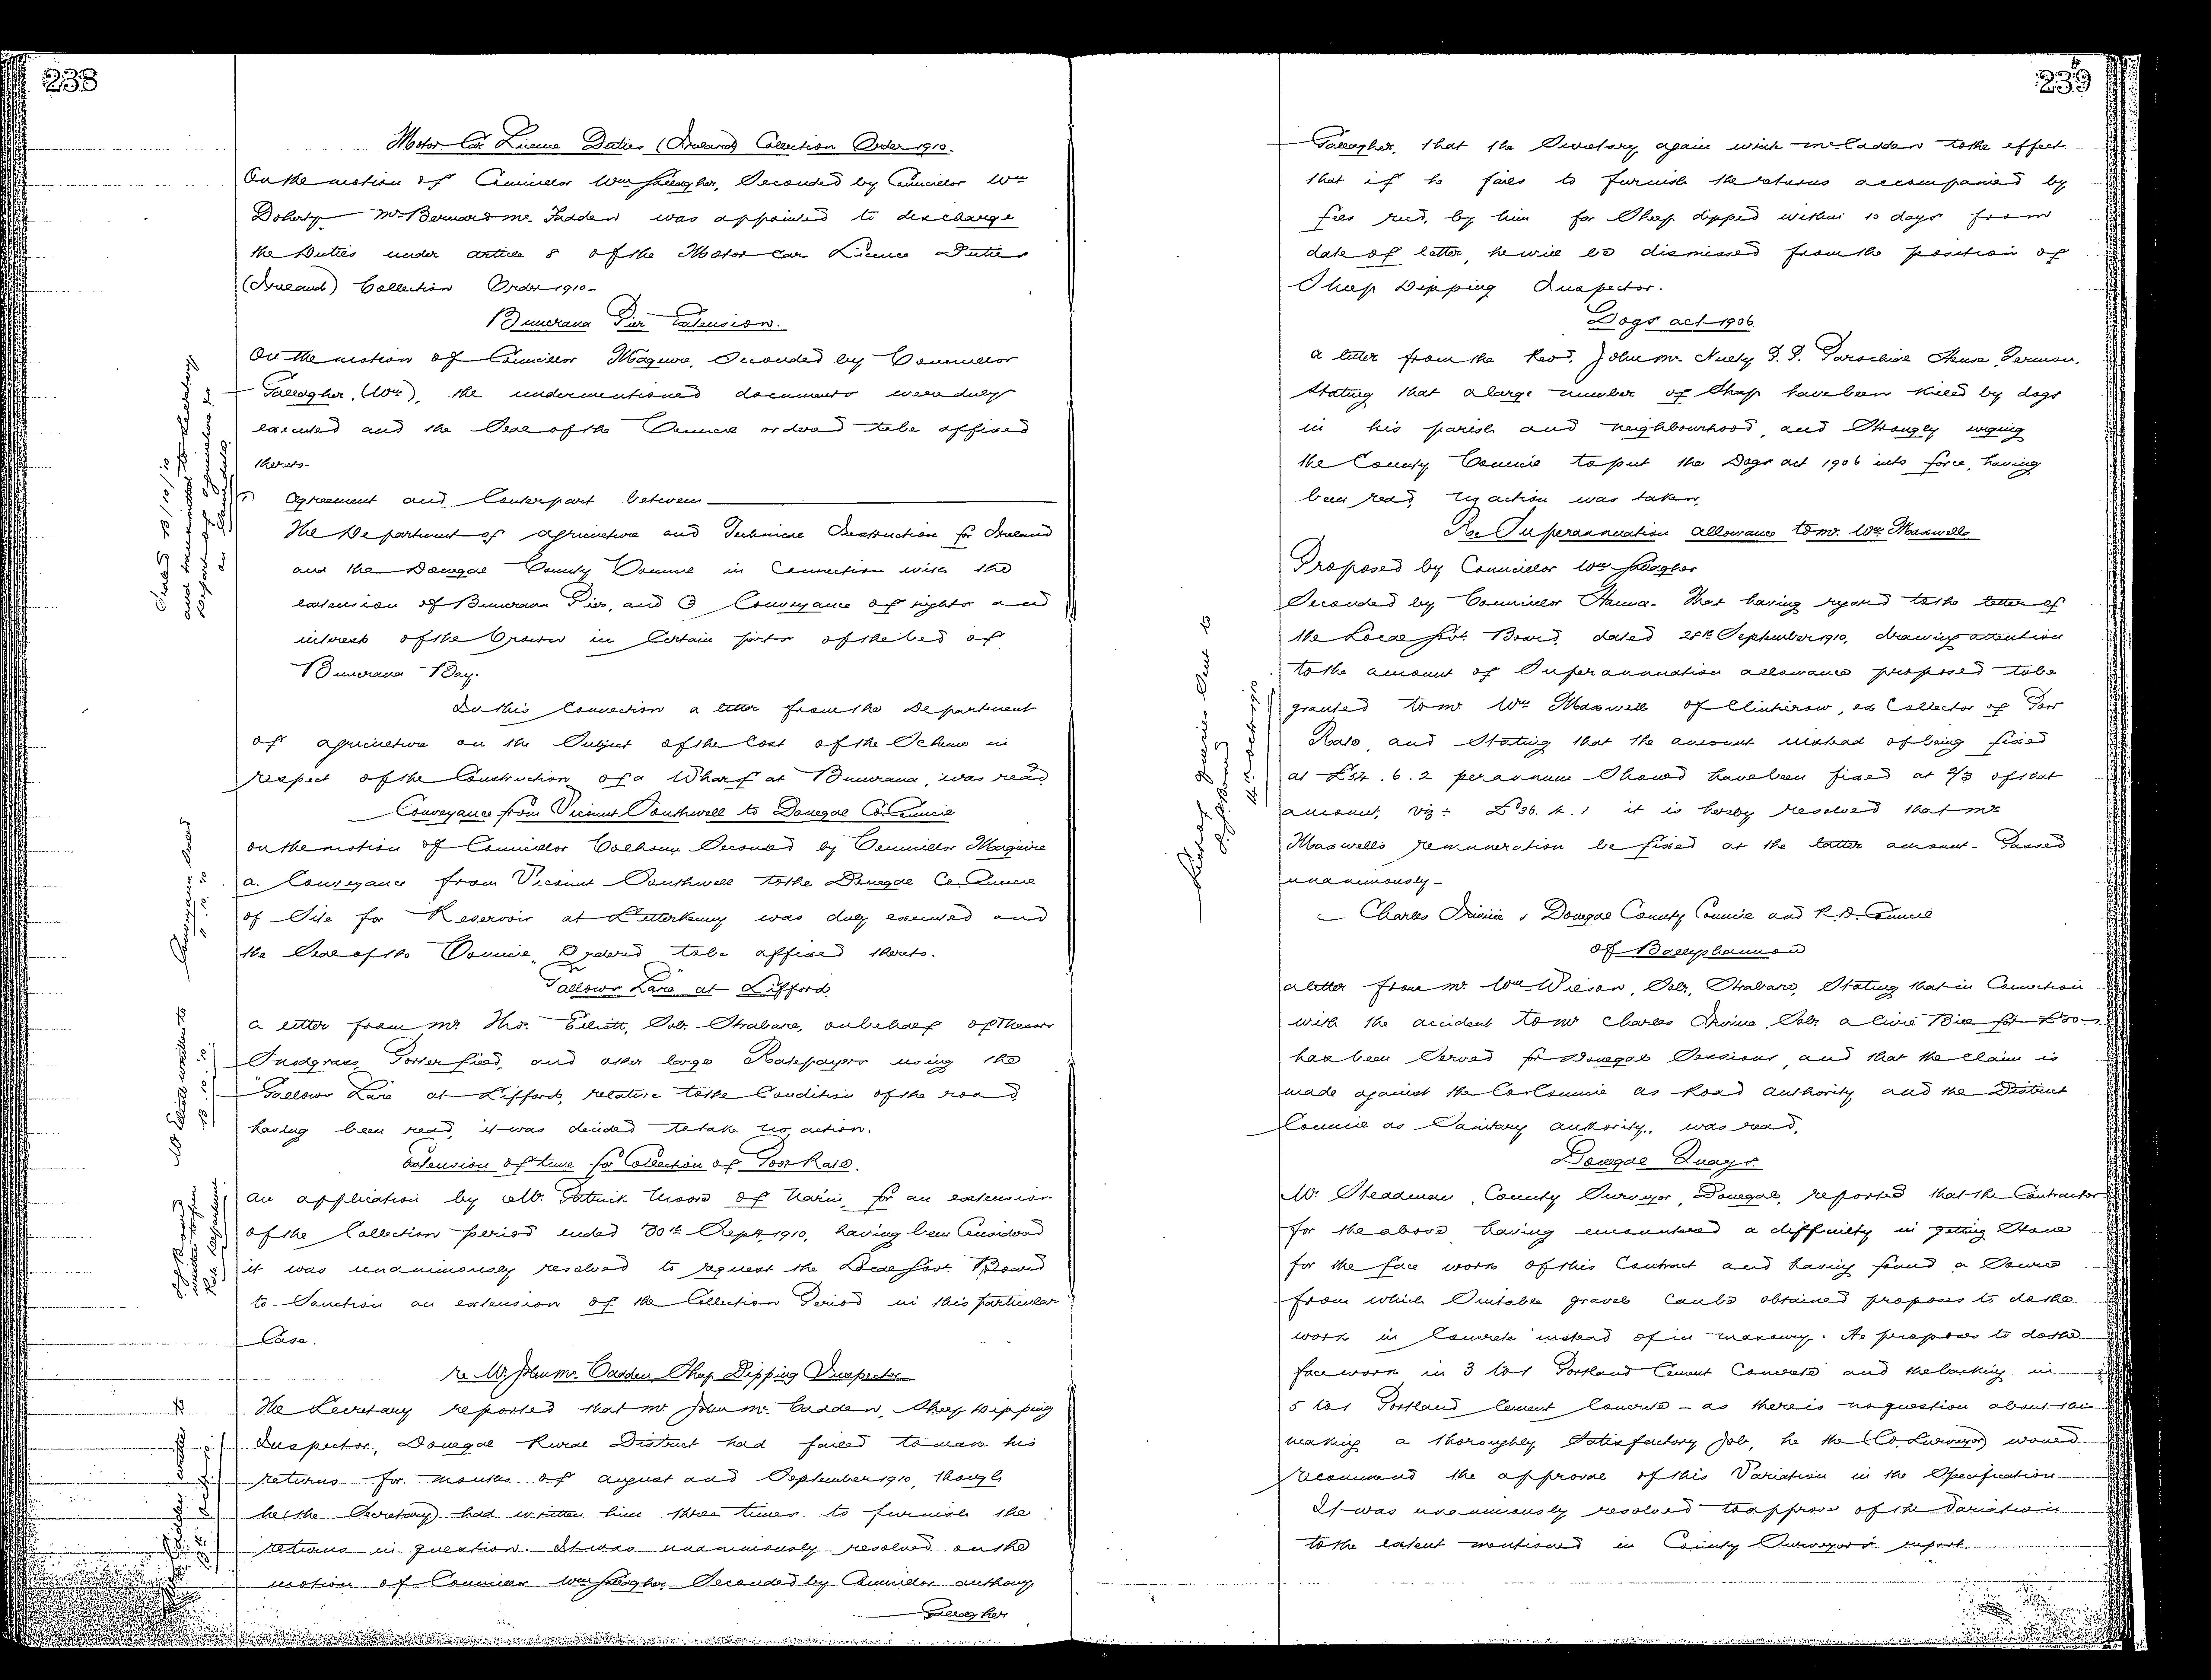 238
Motor Car Licence Duties (Ireland) Collection Order 1910.
On the motion of Councillor Wm Gallagher, Seconded by Councillor Wm
Doherty Mr. Bernard Mc. Fadden was appointed to discharge
the Duties under article 8 of the Motor Car Licence Duties
(Ireland) Collection Order 1910-
Buncrana Pier Extension.
On the motion of Councillor Maguire, Seconded by Councillor
Gallagher, (Wm), the undermentioned documents were duly
executed and the Seal of the Council ordered to be affixed
thereto-
Agreement and Counterpart between
The Department of Agriculture and Technical Instruction for Ireland
and the Donegal County Council in Connection with the
extension of Buncrana Pier, and Conveyance of rights and
interest of the Crown in Certain parts of the bed of
Buncrana Bay.
In this Connection a letter from the Department
of Agriculture on the Subject of the Cost of the Scheme in
respect of the Construction of a Wharf at Buncrana, was read.
Conveyance from Vicount Southwell to Donegal Co. Council
On the motion of Councillor Colhoun Seconded by Councillor Maguire
a Conveyance from Vicount Southwell to the Donegal Co. Council
of Site for Reservoir at Letterkenny was duly executed and
the Seal of the Council, Ordered to be affixed thereto.
Gallows Lane at Lifford
a letter from Mr. Thos. Elliott, Solr. Strabane, on behalf of Messrs
Snodgrass, Porterfield, and other large Ratepayers using the
"Gallows Lane" at Lifford, relative to the Condition of the road,
having been read, it was decided to take no action.
Extension of time for Collection of Poor Rate.
An application by Mr. Patrick Moore of Narin, for an extension
of the Collection period ended 30th Sept. 1910, having been Considered
it was unanimously resolved to request the Local Govt. Board
to Sanction an extension of the Collection Period in this particular
Case.
Re Mr. John Mc. Cadden Sheep Dipping Inspector
The Secretary reported that Mr John Mc. Cadden, Sheep Dipping
Inspector, Donegal Rural District had failed to make his
returns for months of August and September 1910, though
he (the Secretary) had written him three times to furnish the
returns in question. It was unanimously resolved on the
motion of Councillor Wm Gallagher Seconded by Councillor Anthony
Gallagher
Deed 18/10/10
Conveyance
Mr Elliott written to
18.10.10
L.G. Board
239
Gallagher, that the Secretary again write Mr. Cadden to the effect
that if he fails to furnish the returns accompanied by
fees recd. by him for Sheep dipped within 10 days from
date of letter, he will be dismissed from the position of
Sheep Dipping Inspector.
Dogs Act 1906.
A letter from the Revd. John Mc. Nuely P.P. Parochial House, Termon,
Stating that a large number of Sheep have been killed by dogs
in his parish and neighbourhood, and Strongly urging
the County Council to put the Dogs Act 1906 into force, having
been read, no action was taken.
Re Superannuation allowance to Mr. Wm Maxwell
Proposed by Councillor Wm Gallagher
Seconded by Councillor Hanna- That having regard to the letter of
the Local Govt. Board, dated 28th September 1910, drawing attention
to the amount of Superannuation allowance proposed to be
granted to Mr Wm Maxwell of Clinterow, ex Collector of Poor
Rate, and Stating that the amount instead of being fixed
at £54.6.2 per annum Should have been fixed at 2/3 of that
amount, viz:- £36.4.1 it is hereby resolved that Mr
Maxwell's remuneration be fixed at the latter amount- Passed
unanimously-
Charles Irvine v Donegal County Council and R.D. Council
of Ballyshannon
a letter from Mr Wm Wilson, Solr, Strabane, Stating that in Connection
with the accident to Mr Charles Irvine, Solr. a Civil Bill for
has been Served for Donegal Sessions, and that the Claim is
made against the Co. Council as Road Authority and the District
Council as Sanitary Authority, was read.
Donegal Quays.
Mr. Steadman, County Surveyor, Donegal, reported that the Contractor
for the above having encountered a difficulty in getting Stone
for the face work of this Contract and having found a Source
from which Suitable gravel Can be obtained proposes to do the
work in Concrete instead of in masonry. He proposes to do the
face work in 3 to 1 Portland Cement Concrete and the backing in
5 to 1 Portland Cement Concrete - as there is no question about this
making a thoroughly Satisfactory job, he the (Co. Surveyor) would
recommend the approval of this Variation in the Specification
It was unanimously resolved to approve of the Variation
to the extent mentioned in County Surveyor's report.
14th Oct 1910